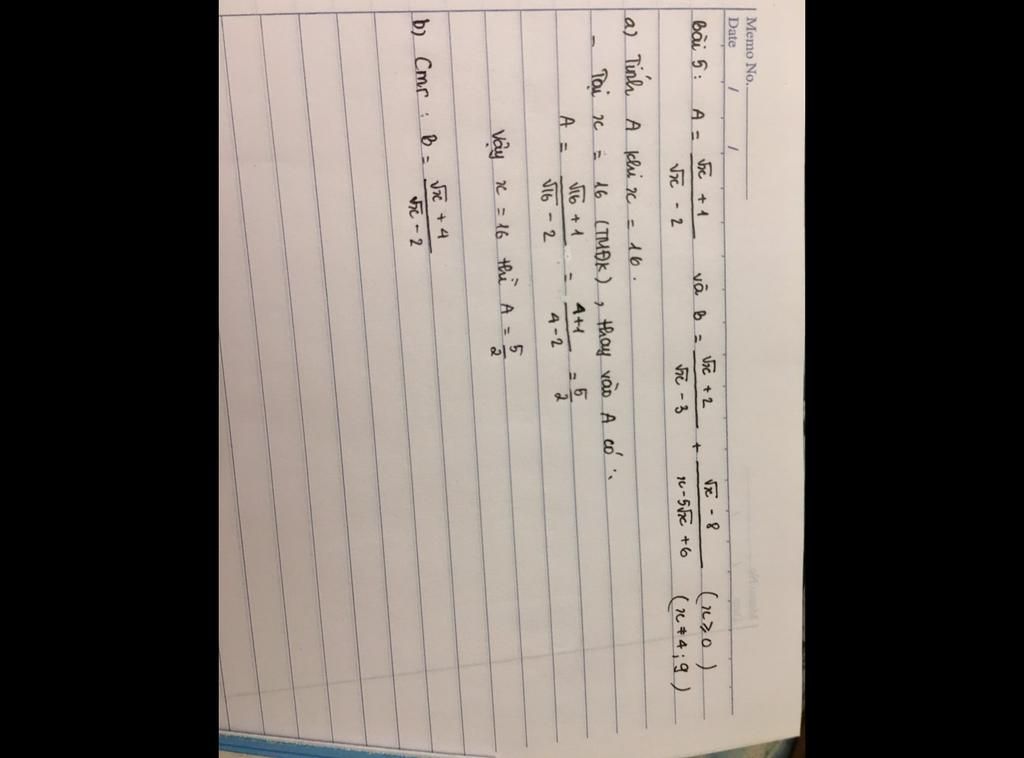 Memo No.
Date / /
Bài 5: A = (√x + 1)/(√x - 2) và B = (√x + 2)/(√x - 3) + (√x - 8)/(x - 5√x + 6) (x ≥ 0) (x ≠ 4; 9)
a) Tính A khi x = 16.
- Tại x = 16 (TMĐK), thay vào A có:
A = (√16 + 1)/(√16 - 2) = (4+1)/(4-2) = 5/2
Vậy x = 16 thì A = 5/2
b) Cmr: B = (√x + 4)/(√x - 2)